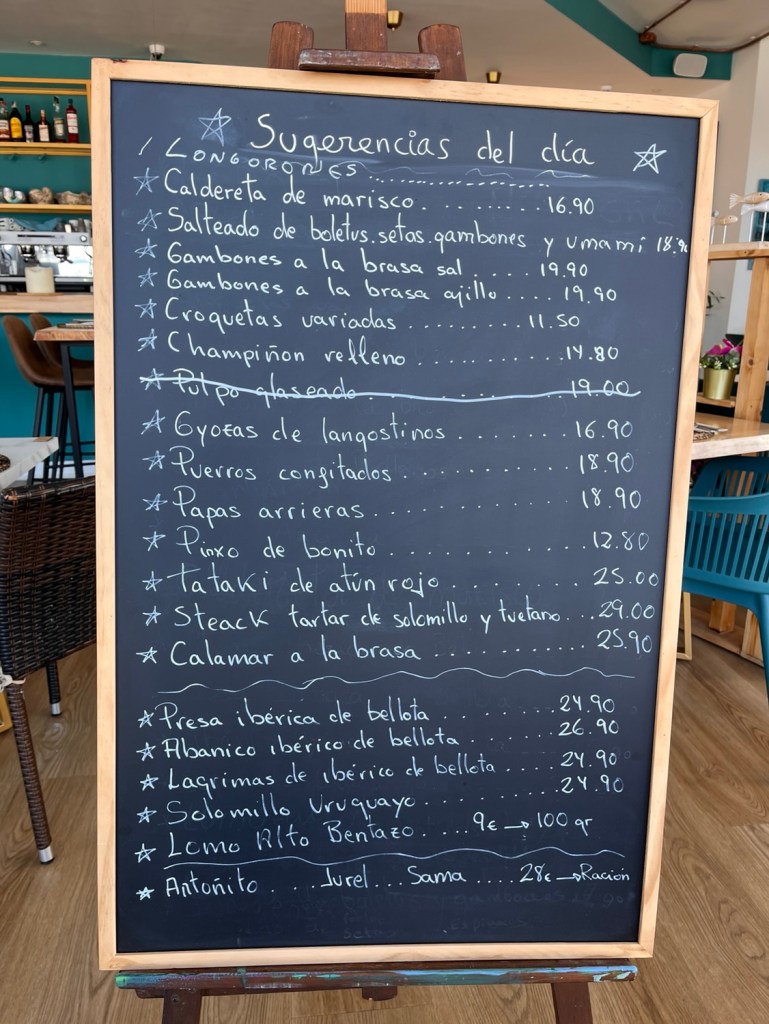 Sugerencias del día
LONGORONES..................
Caldereta de marisco..........16.90
Salteado de boletus.setas.gambones y umami 18.90
Gambones a la brasa sal.....19.90
Gambones a la brasa ajillo....19.90
Croquetas variadas.........11.50
Champiñon relleno...........14.80
Pulpo glaseado..............19.00
Gyozas de langostinos........16.90
Puerros confitados...........18.90
Papas arrieras..............18.90
Pinxo de bonito.............12.80
Tataki de atún rojo.........25.00
Steack tartar de solomillo y tuetano...29.00
Calamar a la brasa..........25.90
Presa ibérica de bellota.......24.90
Abanico ibérico de bellota......26.90
Lagrimas de ibérico de bellota....24.90
Solomillo Uruguayo..........24.90
Lomo Alto Bentazo....9€→100 gr
Antoñito....Jurel...Sama....28€→Ración